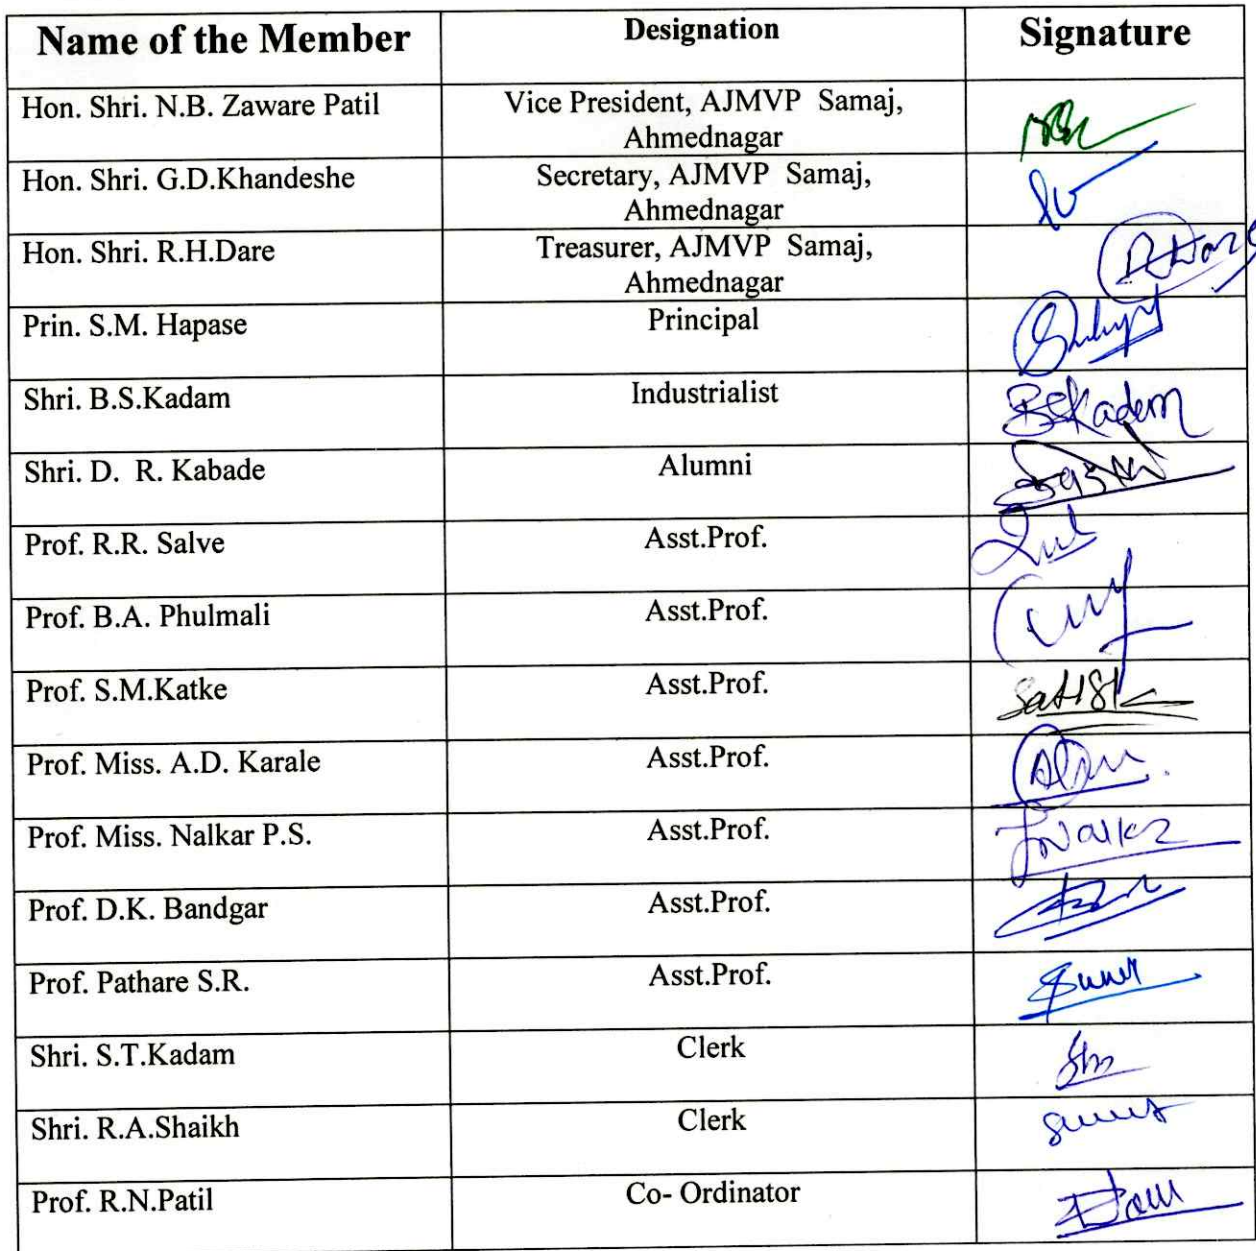 Name of the Member Designation Signature
Hon. Shri. N.B. Zaware Patil Vice President, AJMVP Samaj,
Ahmednagar
Hon. Shri. G.D.Khandeshe Secretary, AJMVP Samaj,
Ahmednagar
Hon. Shri. R.H.Dare Treasurer, AJMVP Samaj,
Ahmednagar
Prin. S.M. Hapase Principal
Shri. B.S.Kadam Industrialist BSKadam
Shri. D. R. Kabade Alumni
Prof. R.R. Salve Asst.Prof.
Prof. B.A. Phulmali Asst.Prof.
Prof. S.M.Katke Asst.Prof.
Prof. Miss. A.D. Karale Asst.Prof.
Prof. Miss. Nalkar P.S. Asst.Prof.
Prof. D.K. Bandgar Asst.Prof.
Prof. Pathare S.R. Asst.Prof.
Shri. S.T.Kadam Clerk
Shri. R.A.Shaikh Clerk
Prof. R.N.Patil Co- Ordinator